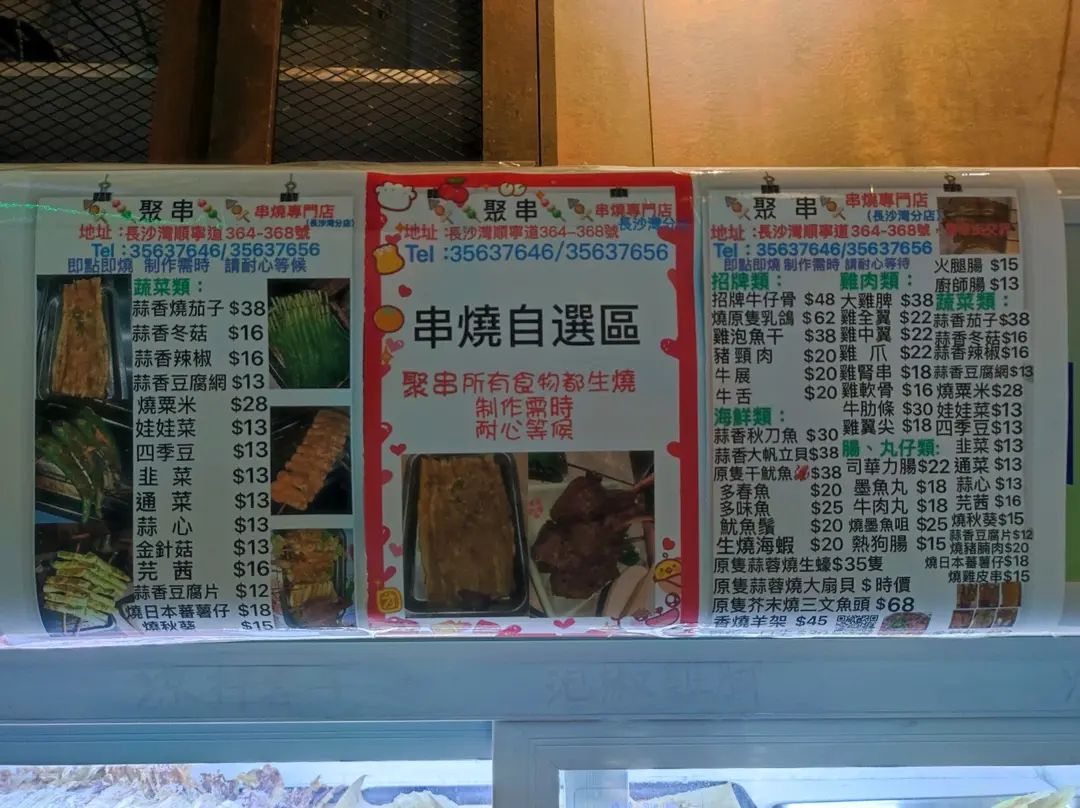 聚串 串燒專門店
(長沙灣分店)
地址：長沙灣順寧道364-368號
Tel :35637646/35637656
即點即燒 制作需時 請耐心等候
蔬菜類：
蒜香燒茄子$38
蒜香冬菇 $16
蒜香辣椒 $16
蒜香豆腐網$13
燒粟米 $28
娃娃菜 $13
四季豆 $13
韭菜 $13
通菜 $13
蒜心 $13
金針菇 $13
芫茜 $16
蒜香豆腐片$12
燒日本蕃薯仔 $18
燒秋葵 $15
聚串 串燒專門店
長沙灣分
地址：長沙灣順寧道364-368號
Tel :35637646/35637656
串燒自選區
聚串所有食物都生燒
制作需時
耐心等候
聚串 串燒專門店
(長沙灣分店)
地址：長沙灣順寧道364-368號
Tel :35637646/35637656
即點即燒 制作需時 請耐心等待
招牌類：
招牌牛仔骨 $48
燒原隻乳鴿 $62
雞泡魚干 $38
豬頸肉 $20
牛展 $20
牛舌 $20
海鮮類：
蒜香秋刀魚 $30
蒜香大帆立貝$38
原隻干魷魚$38
多春魚 $20
多味魚 $25
魷魚鬚 $20
生燒海蝦 $20
原隻蒜蓉燒生蠔$35隻
原隻蒜蓉燒大扇貝 $時價
原隻芥末燒三文魚頭 $68
香燒羊架 $45
雞肉類：
大雞脾 $38
雞全翼 $22
雞中翼 $22
雞爪 $22
雞腎串 $18
雞軟骨 $16
牛肋條 $30
雞翼尖 $18
腸、丸仔類：
司華力腸$22
墨魚丸 $18
牛肉丸 $18
燒墨魚咀 $25
熱狗腸 $15
火腿腸 $15
廚師腸 $13
蔬菜類：
蒜香茄子$38
蒜香冬菇$16
蒜香辣椒$16
蒜香豆腐網$13
燒粟米$28
娃娃菜$13
四季豆$13
韭菜 $13
通菜 $13
蒜心 $13
芫茜 $16
燒秋葵$15
蒜香豆腐片$12
燒豬腩肉$20
燒日本蕃薯仔$18
燒雞皮串$15